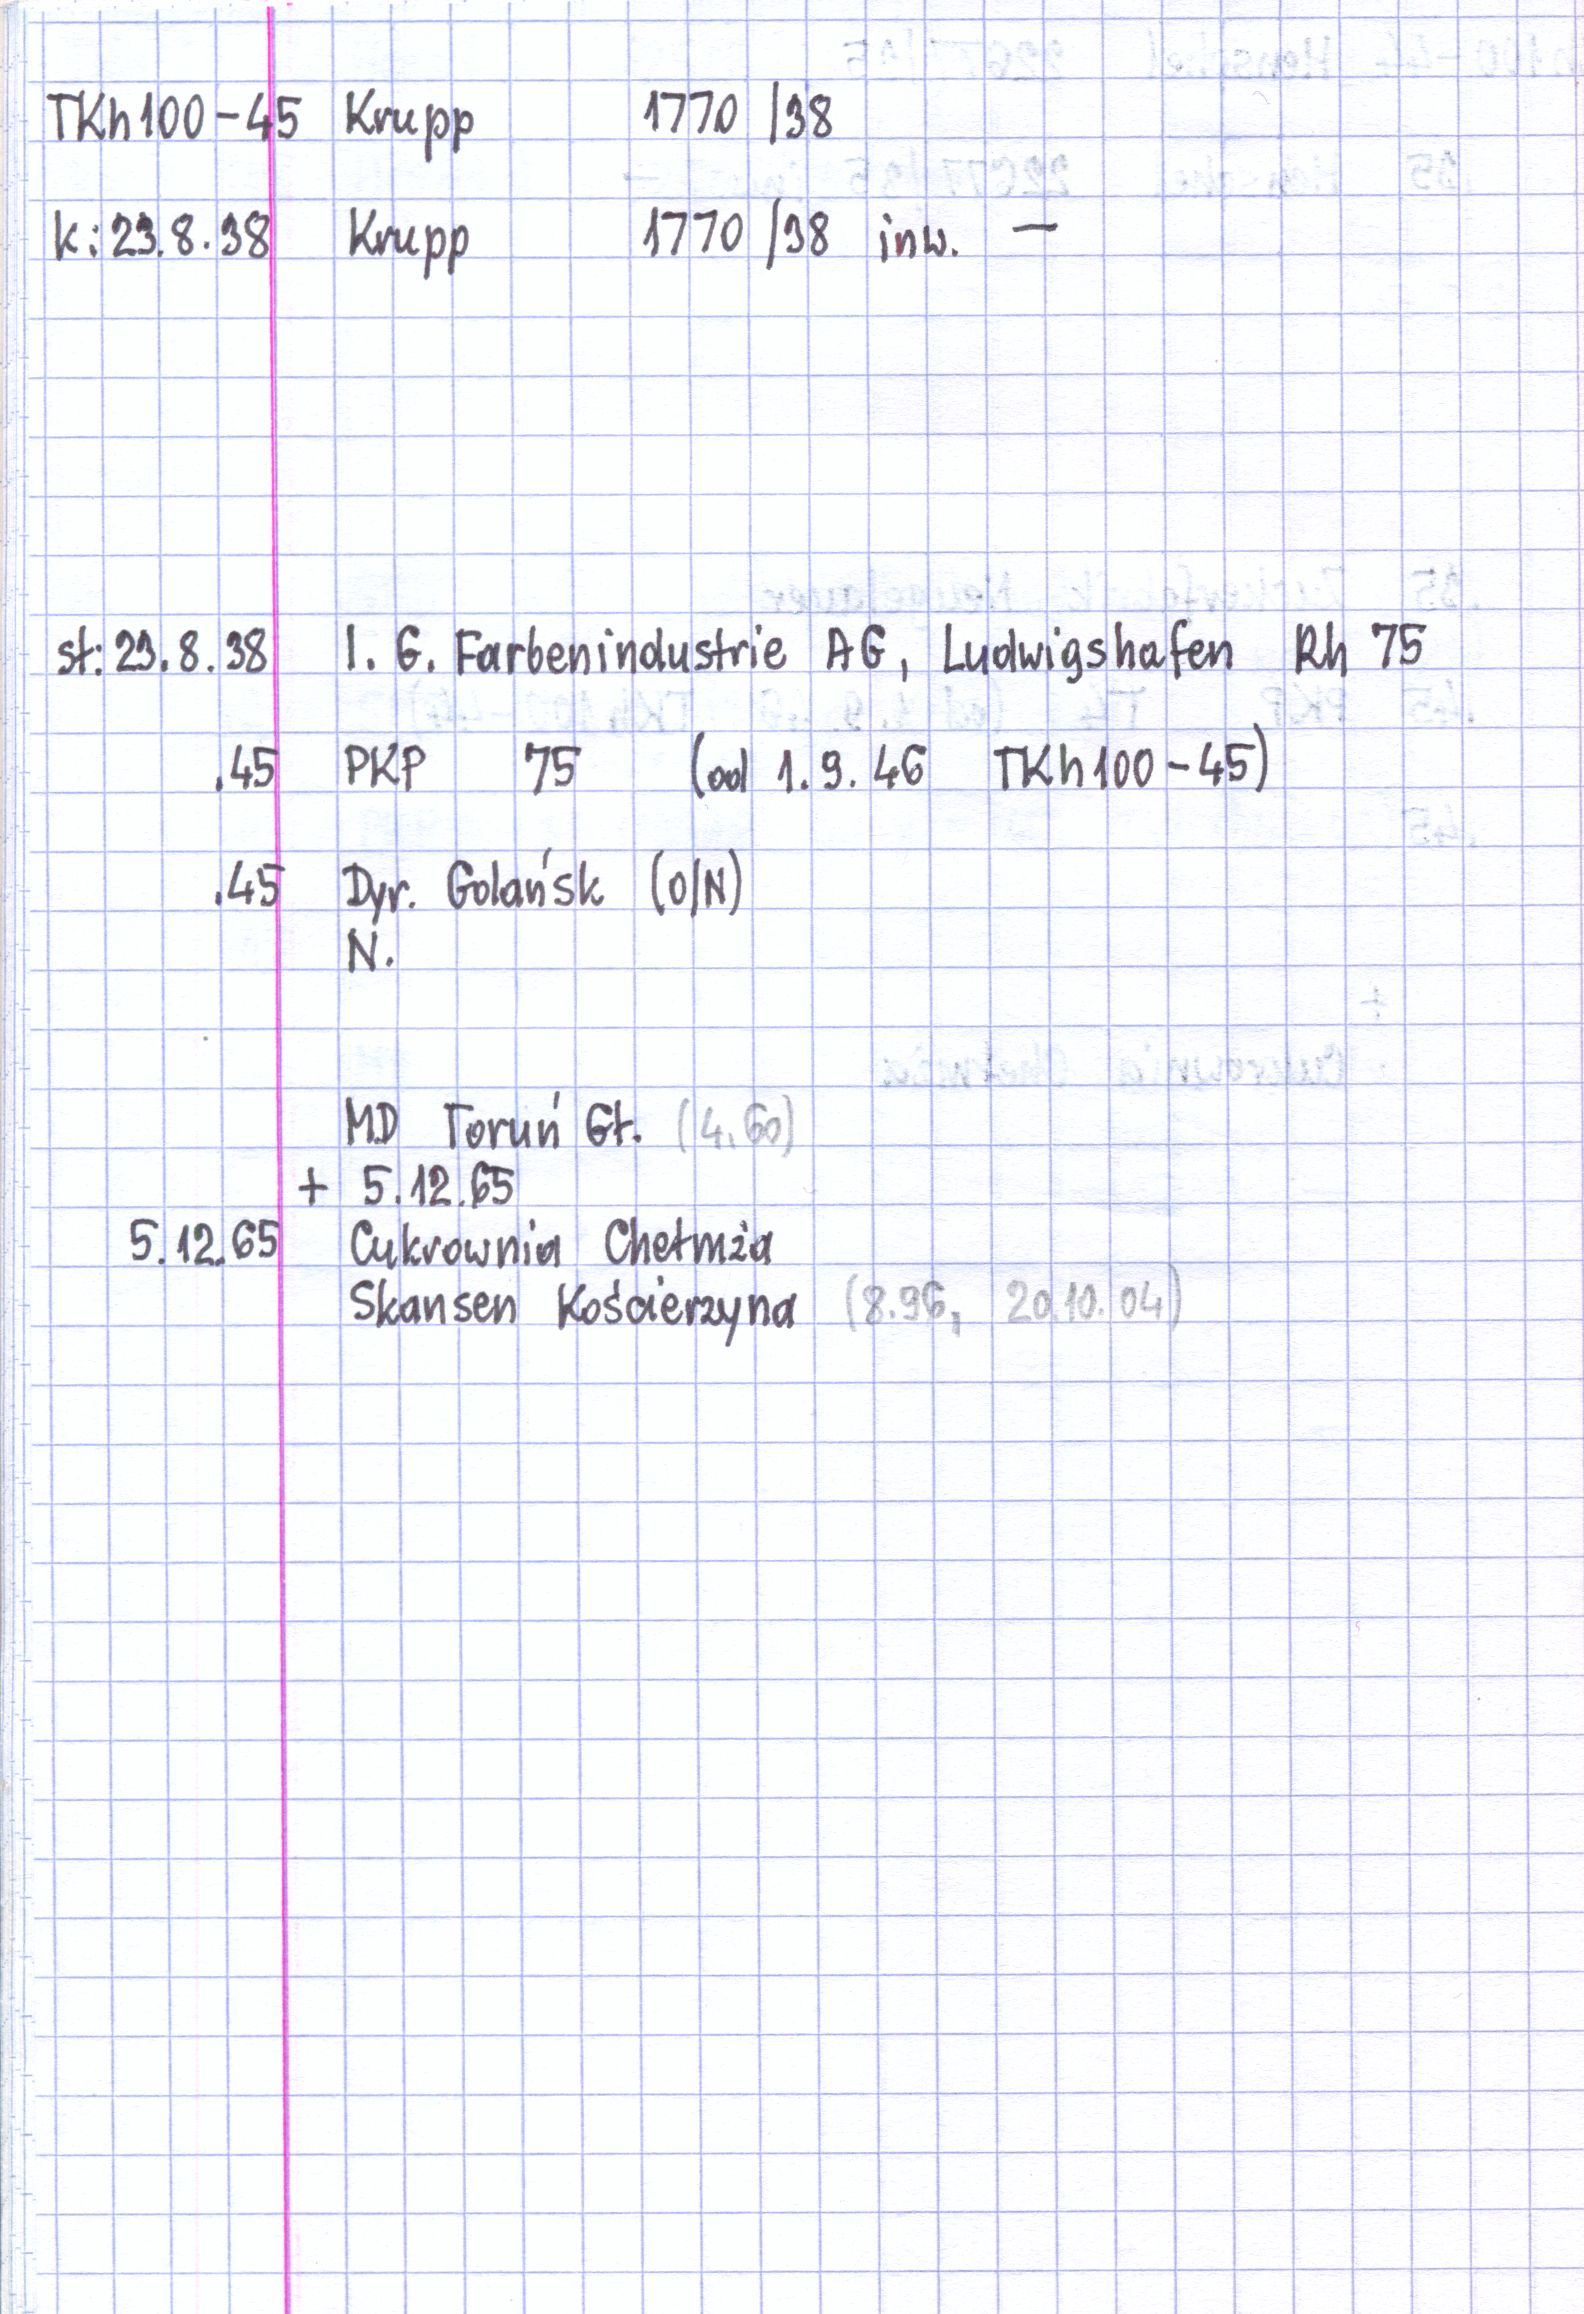 TKh100-45 Krupp 1770/38
k: 23.8.38 Krupp 1770/38 inw. —
st: 23.8.38 I. G. Farbenindustrie AG, Ludwigshafen Rh 75
.45 PKP 75 (od 1.9.46 TKh100-45)
.45 Dyr. Gdańsk (O/N)
N.
MD Toruń Gł. (4.60)
+ 5.12.65
5.12.65 Cukrownia Chełmża
Skansen Kościerzyna (8.96, 20.10.04)